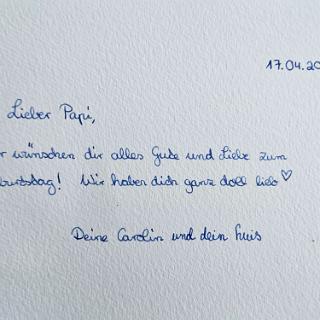 17.04.20
Lieber Papi,
r wünschen dir alles Gute und Liebe zum
burtstag! Wir haben dich ganz doll lieb♡
Deine Carolin und dein Luis